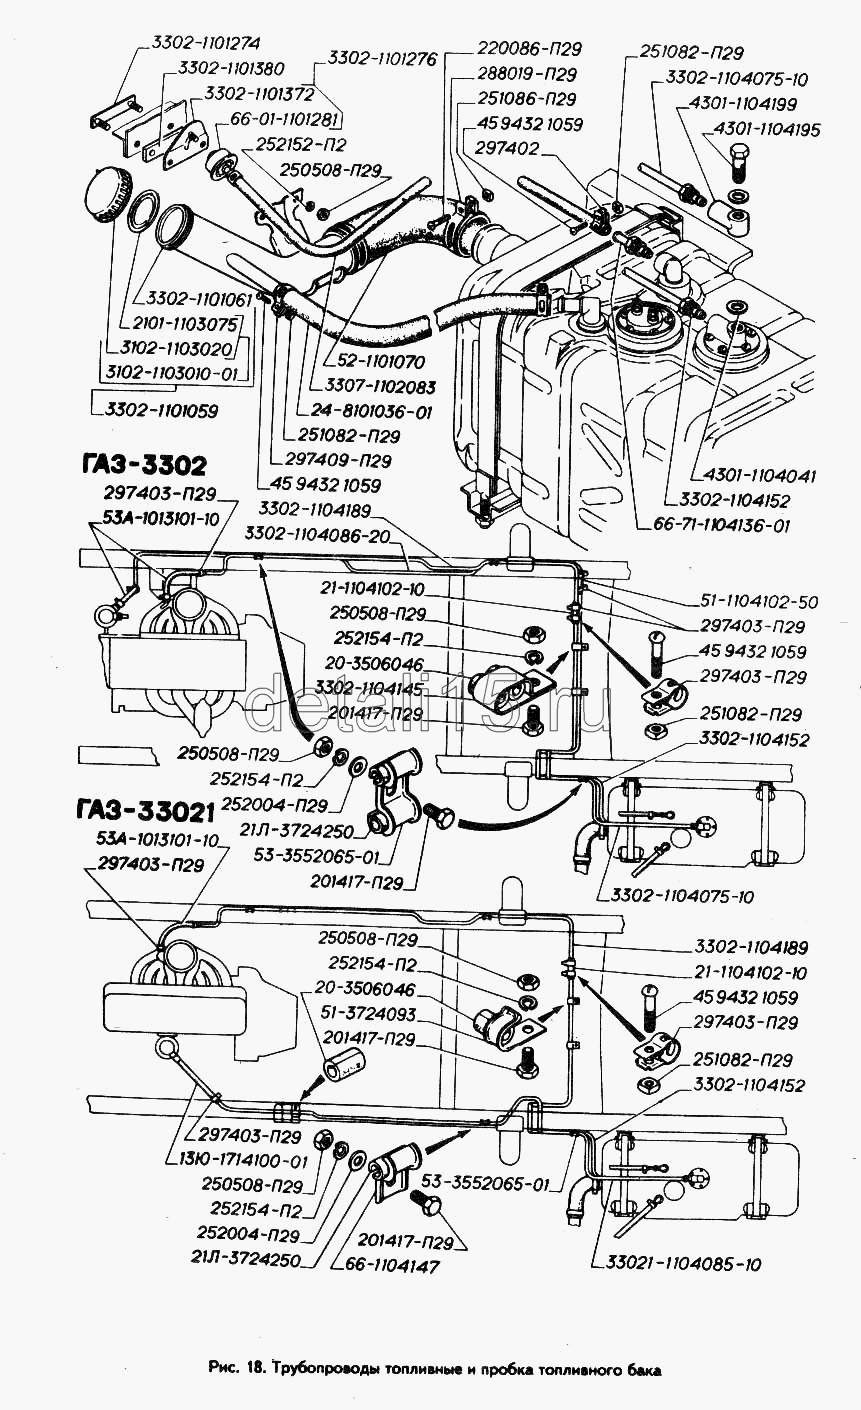 3302-1101274
3302-1101380
3302-1101372
3302-1101276
66-01-1101281
252152-П2
250508-П29
220086-П29
288019-П29
251086-П29
45 9432 1059
297402
251082-П29
3302-1104075-10
4301-1104199
4301-1104195
3302-1101061
2101-1103075
3102-1103020
3102-1103010-01
3302-1101059
52-1101070
3307-1102083
24-8101036-01
251082-П29
297409-П29
45 9432 1059
4301-1104041
3302-1104152
66-71-1104136-01
ГАЗ-3302
297403-П29
53А-1013101-10
3302-1104189
3302-1104086-20
21-1104102-10
250508-П29
252154-П2
20-3506046
3302-1104145
201417-П29
51-1104102-50
297403-П29
45 9432 1059
297403-П29
251082-П29
3302-1104152
detali15.ru
250508-П29
252154-П2
252004-П29
21Л-3724250
53-3552065-01
201417-П29
3302-1104075-10
ГАЗ-33021
53А-1013101-10
297403-П29
250508-П29
252154-П2
20-3506046
51-3724093
201417-П29
3302-1104189
21-1104102-10
45 9432 1059
297403-П29
251082-П29
3302-1104152
297403-П29
13Ю-1714100-01
250508-П29
252154-П2
252004-П29
21Л-3724250
53-3552065-01
201417-П29
66-1104147
33021-1104085-10
Рис. 18. Трубопроводы топливные и пробка топливного бака